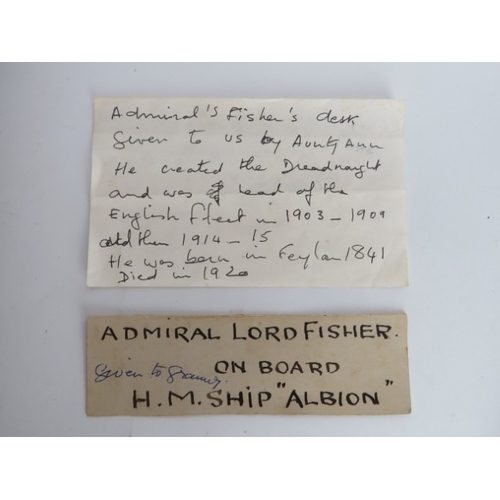 Admiral's Fisher's desk
Given to us by Aunty Ann
He created the Dreadnaught
and was head of the
English fleet in 1903 - 1909
and then 1914 - 15
He was born in Feylan 1841
Died in 1920
ADMIRAL LORD FISHER.
ON BOARD
Given to Granny.
H.M. SHIP "ALBION"